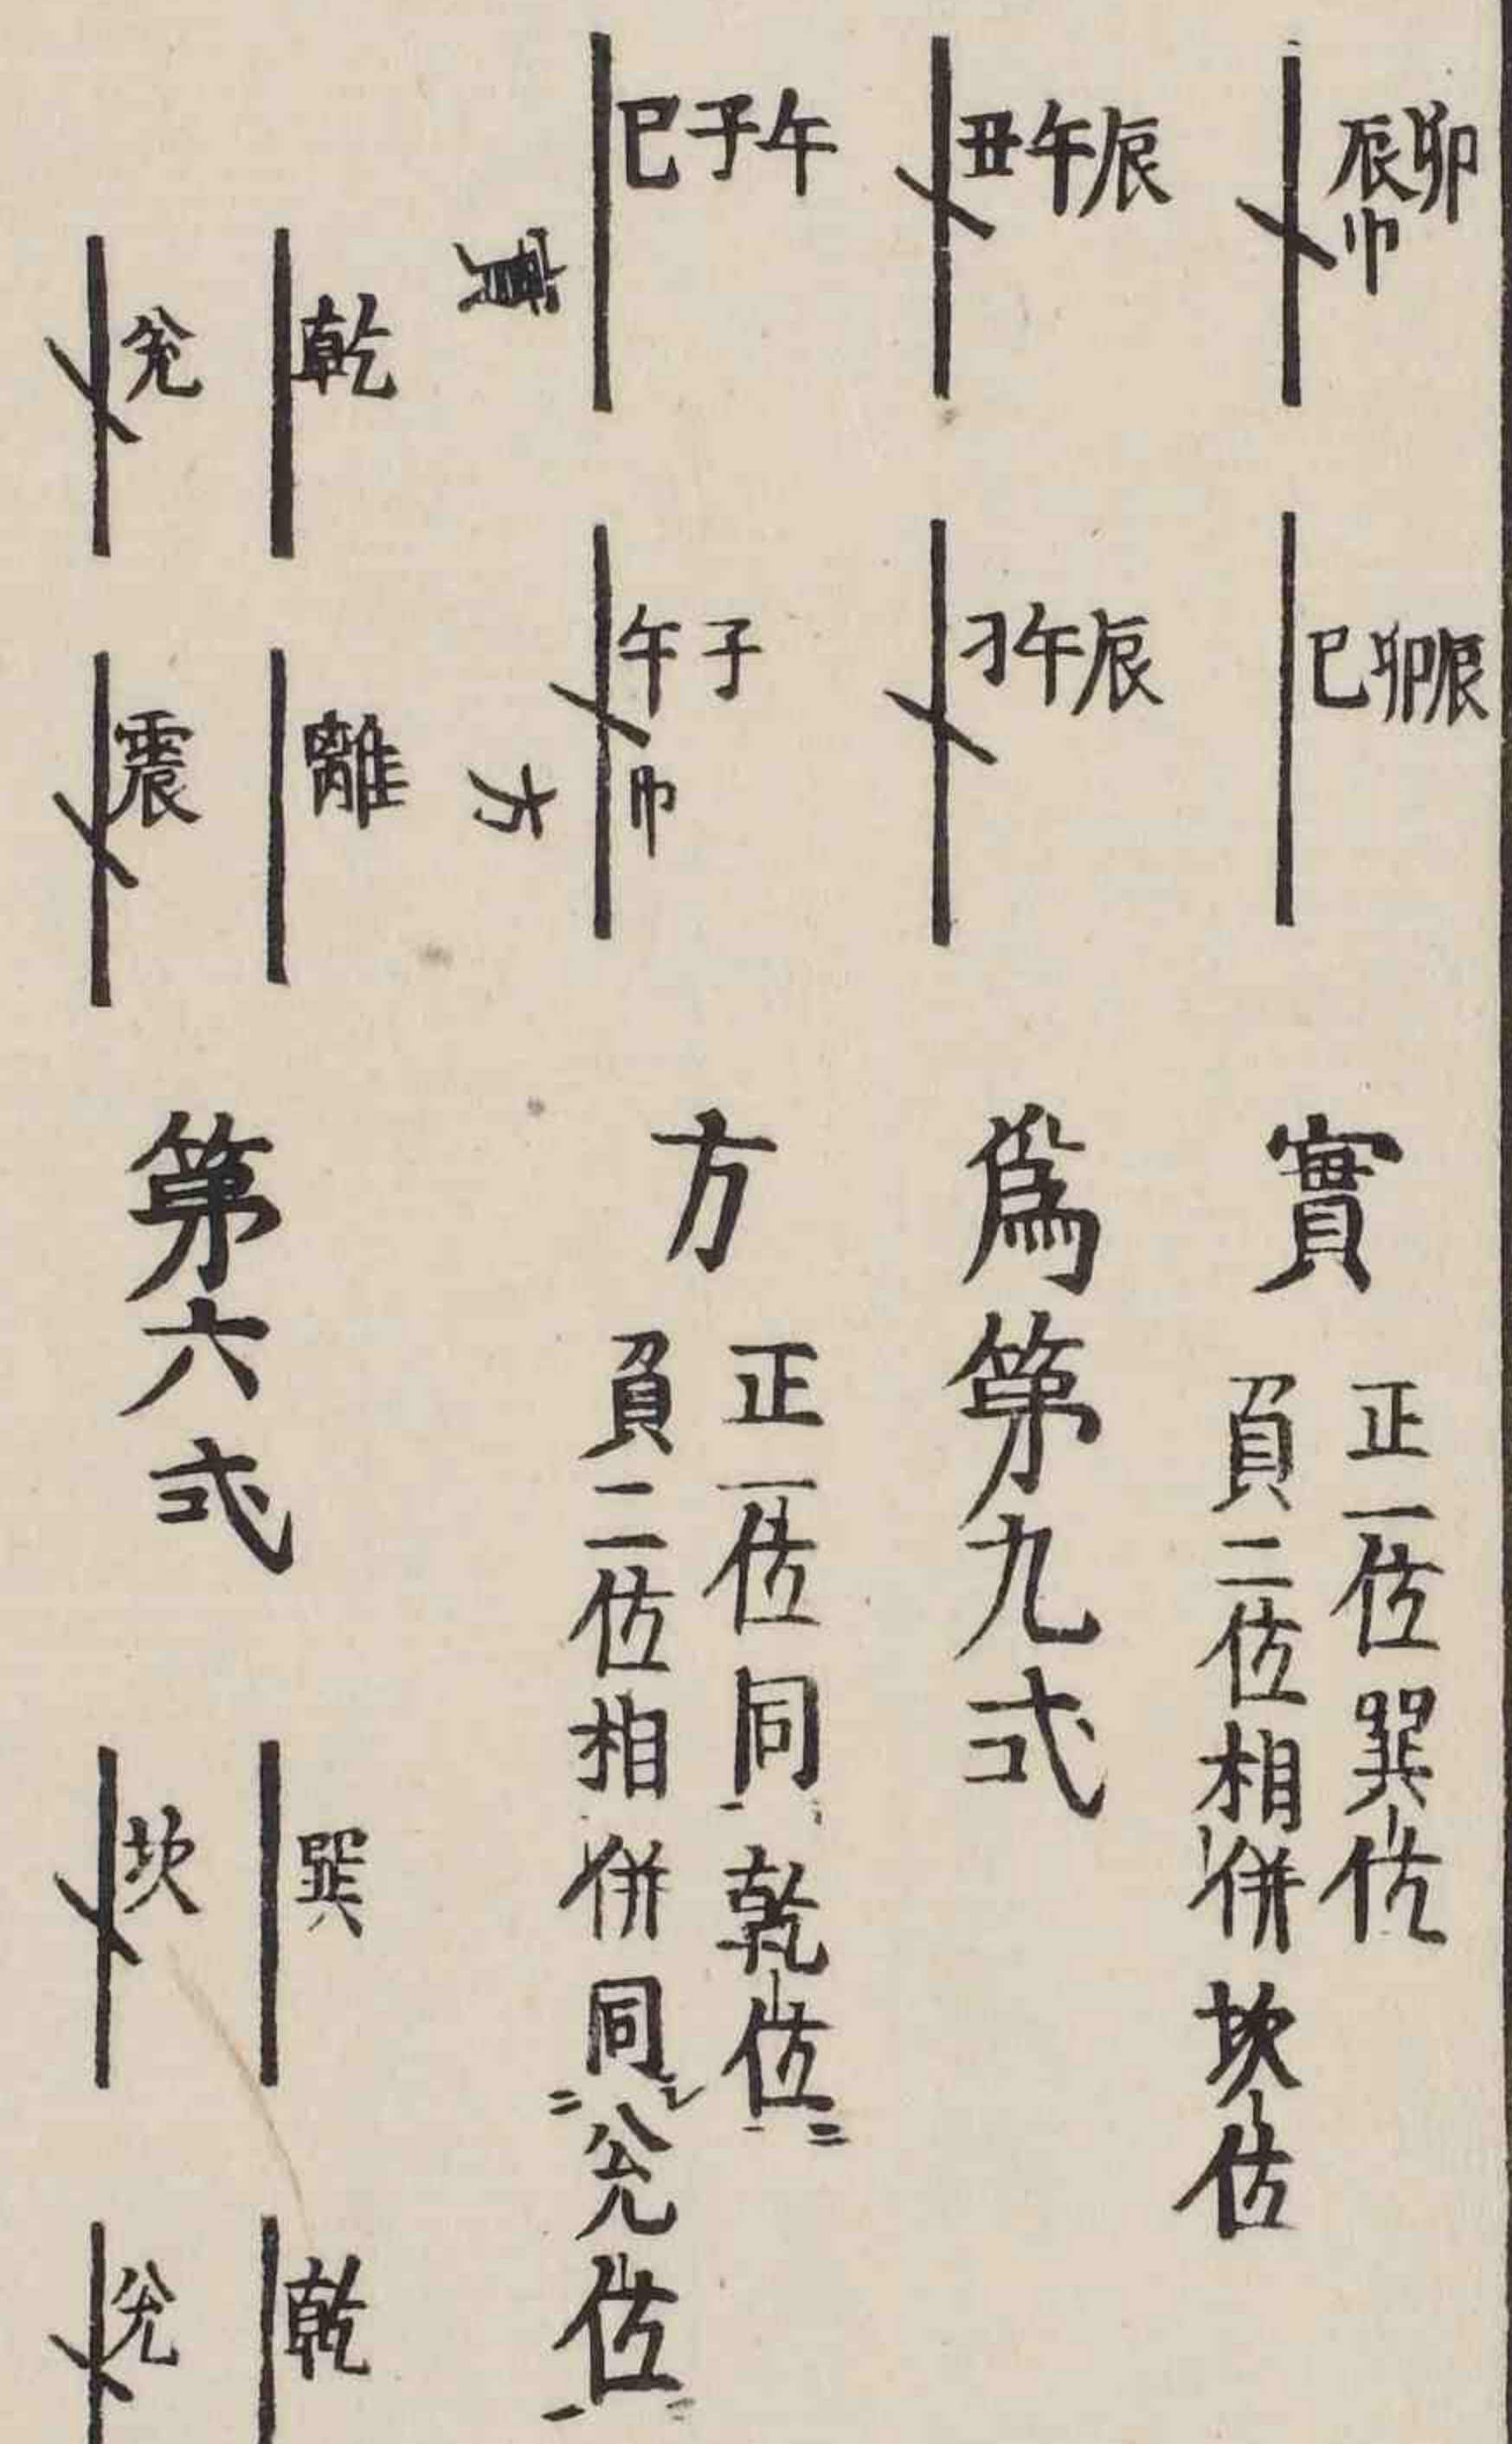 卯辰巾
辰卯巳
實
正一位巽位
負二位相併坎位
辰午丑
辰午刁
爲第九式
午子巳
子午巾
方
正一位同乾位
負二位相併同兌位
實
方
乾
離
兌
震
第六式
巽
乾
坎
兌